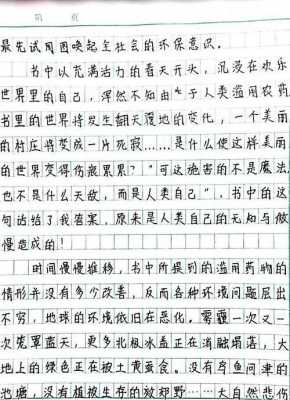 第 页
最先试用图唤起全社会的环保意识。
书中以充满活力的春天开头，沉浸在欢乐
世界里的自己，浑然不知由于人类滥用农药
书里的世界将发生翻天覆地的变化，一个美丽
的村庄将变成一片死寂……是什么使这样美丽
的世界变得伤痕累累？“可这施害的不是魔法，
也不是什么天敌，而是人类自己”，书中的这
句话给了我答案，原来是人类自己的无知与傲
慢造成的！
时间慢慢推移，书中所提到的滥用药物的
情形并没有多少改善，反而各种环境问题层出
不穷，地球的环境依旧在恶化。雾霾一次又一
次笼罩蓝天，更多北极冰盖正在消融塌落，大
地上的绿色正在被土黄蚕食。没有鸟鱼问津的
池塘，没有植被生存的放郊野……大自然悲伤